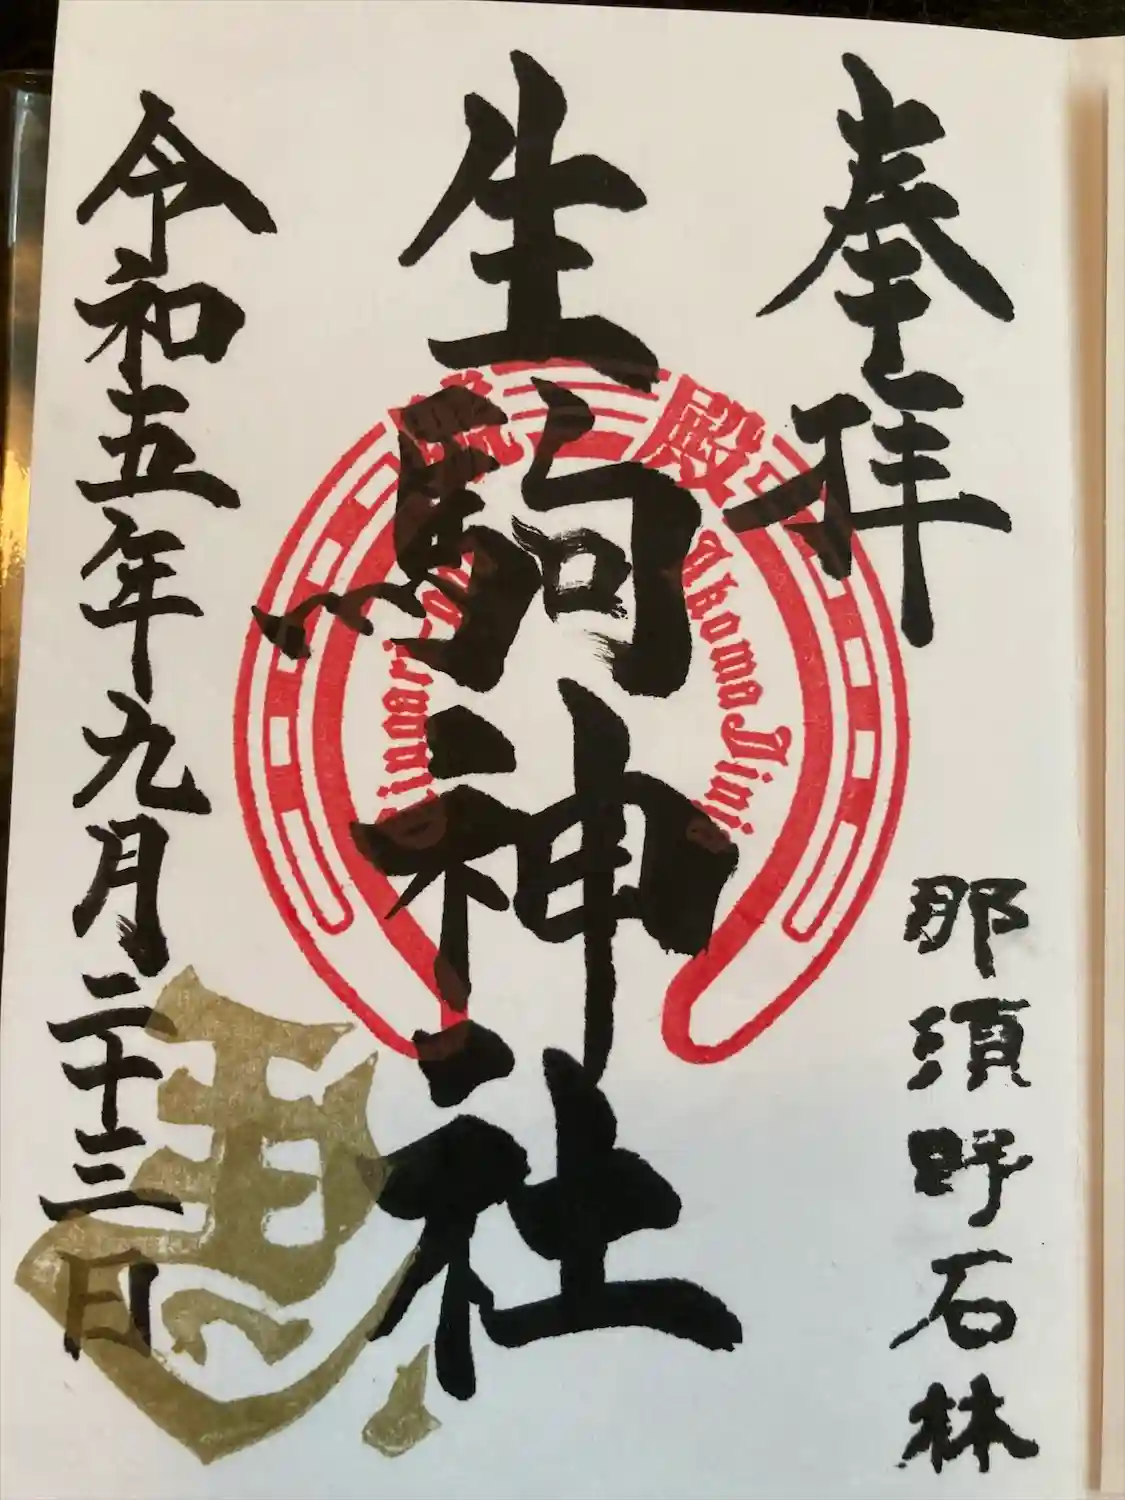 奉拜
那須野石林
生駒神社
殿
Ikoma Jinj
令和五年九月二十三日